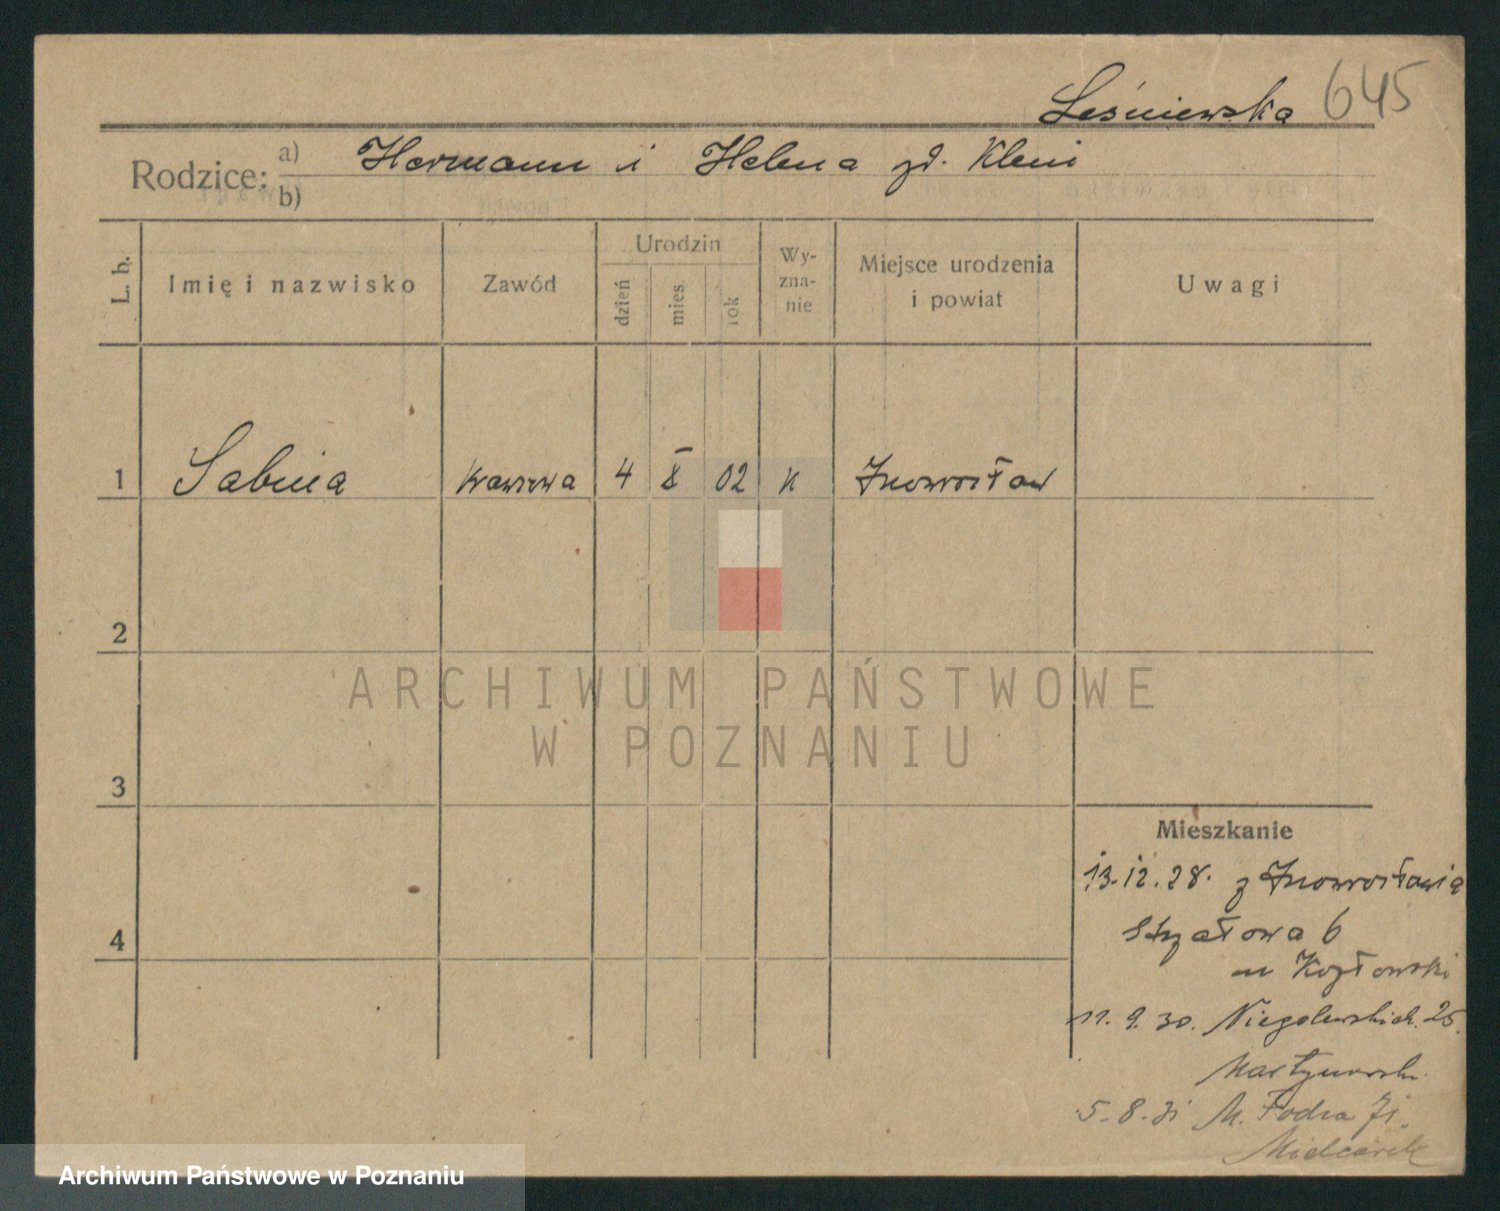 Leśniewska 645
Rodzice: a) Hermann i Helena zd. Klein
b)
L. b. Imię i nazwisko Zawód Urodzin dzień mies rok Wy-zna-nie Miejsce urodzenia i powiat Uwagi
1 Sabina krawcowa 4 X 02 K Inowrocław
2
ARCHIWUM PAŃSTWOWE
W POZNANIU
3
Mieszkanie
13.12.28. z Inowrocławia
4
Strzałowa 6
m Kozłowski
11.9.30. Niegolewskich 25.
5.8.31 M. Focha
Mielcarek
Archiwum Państwowe w Poznaniu